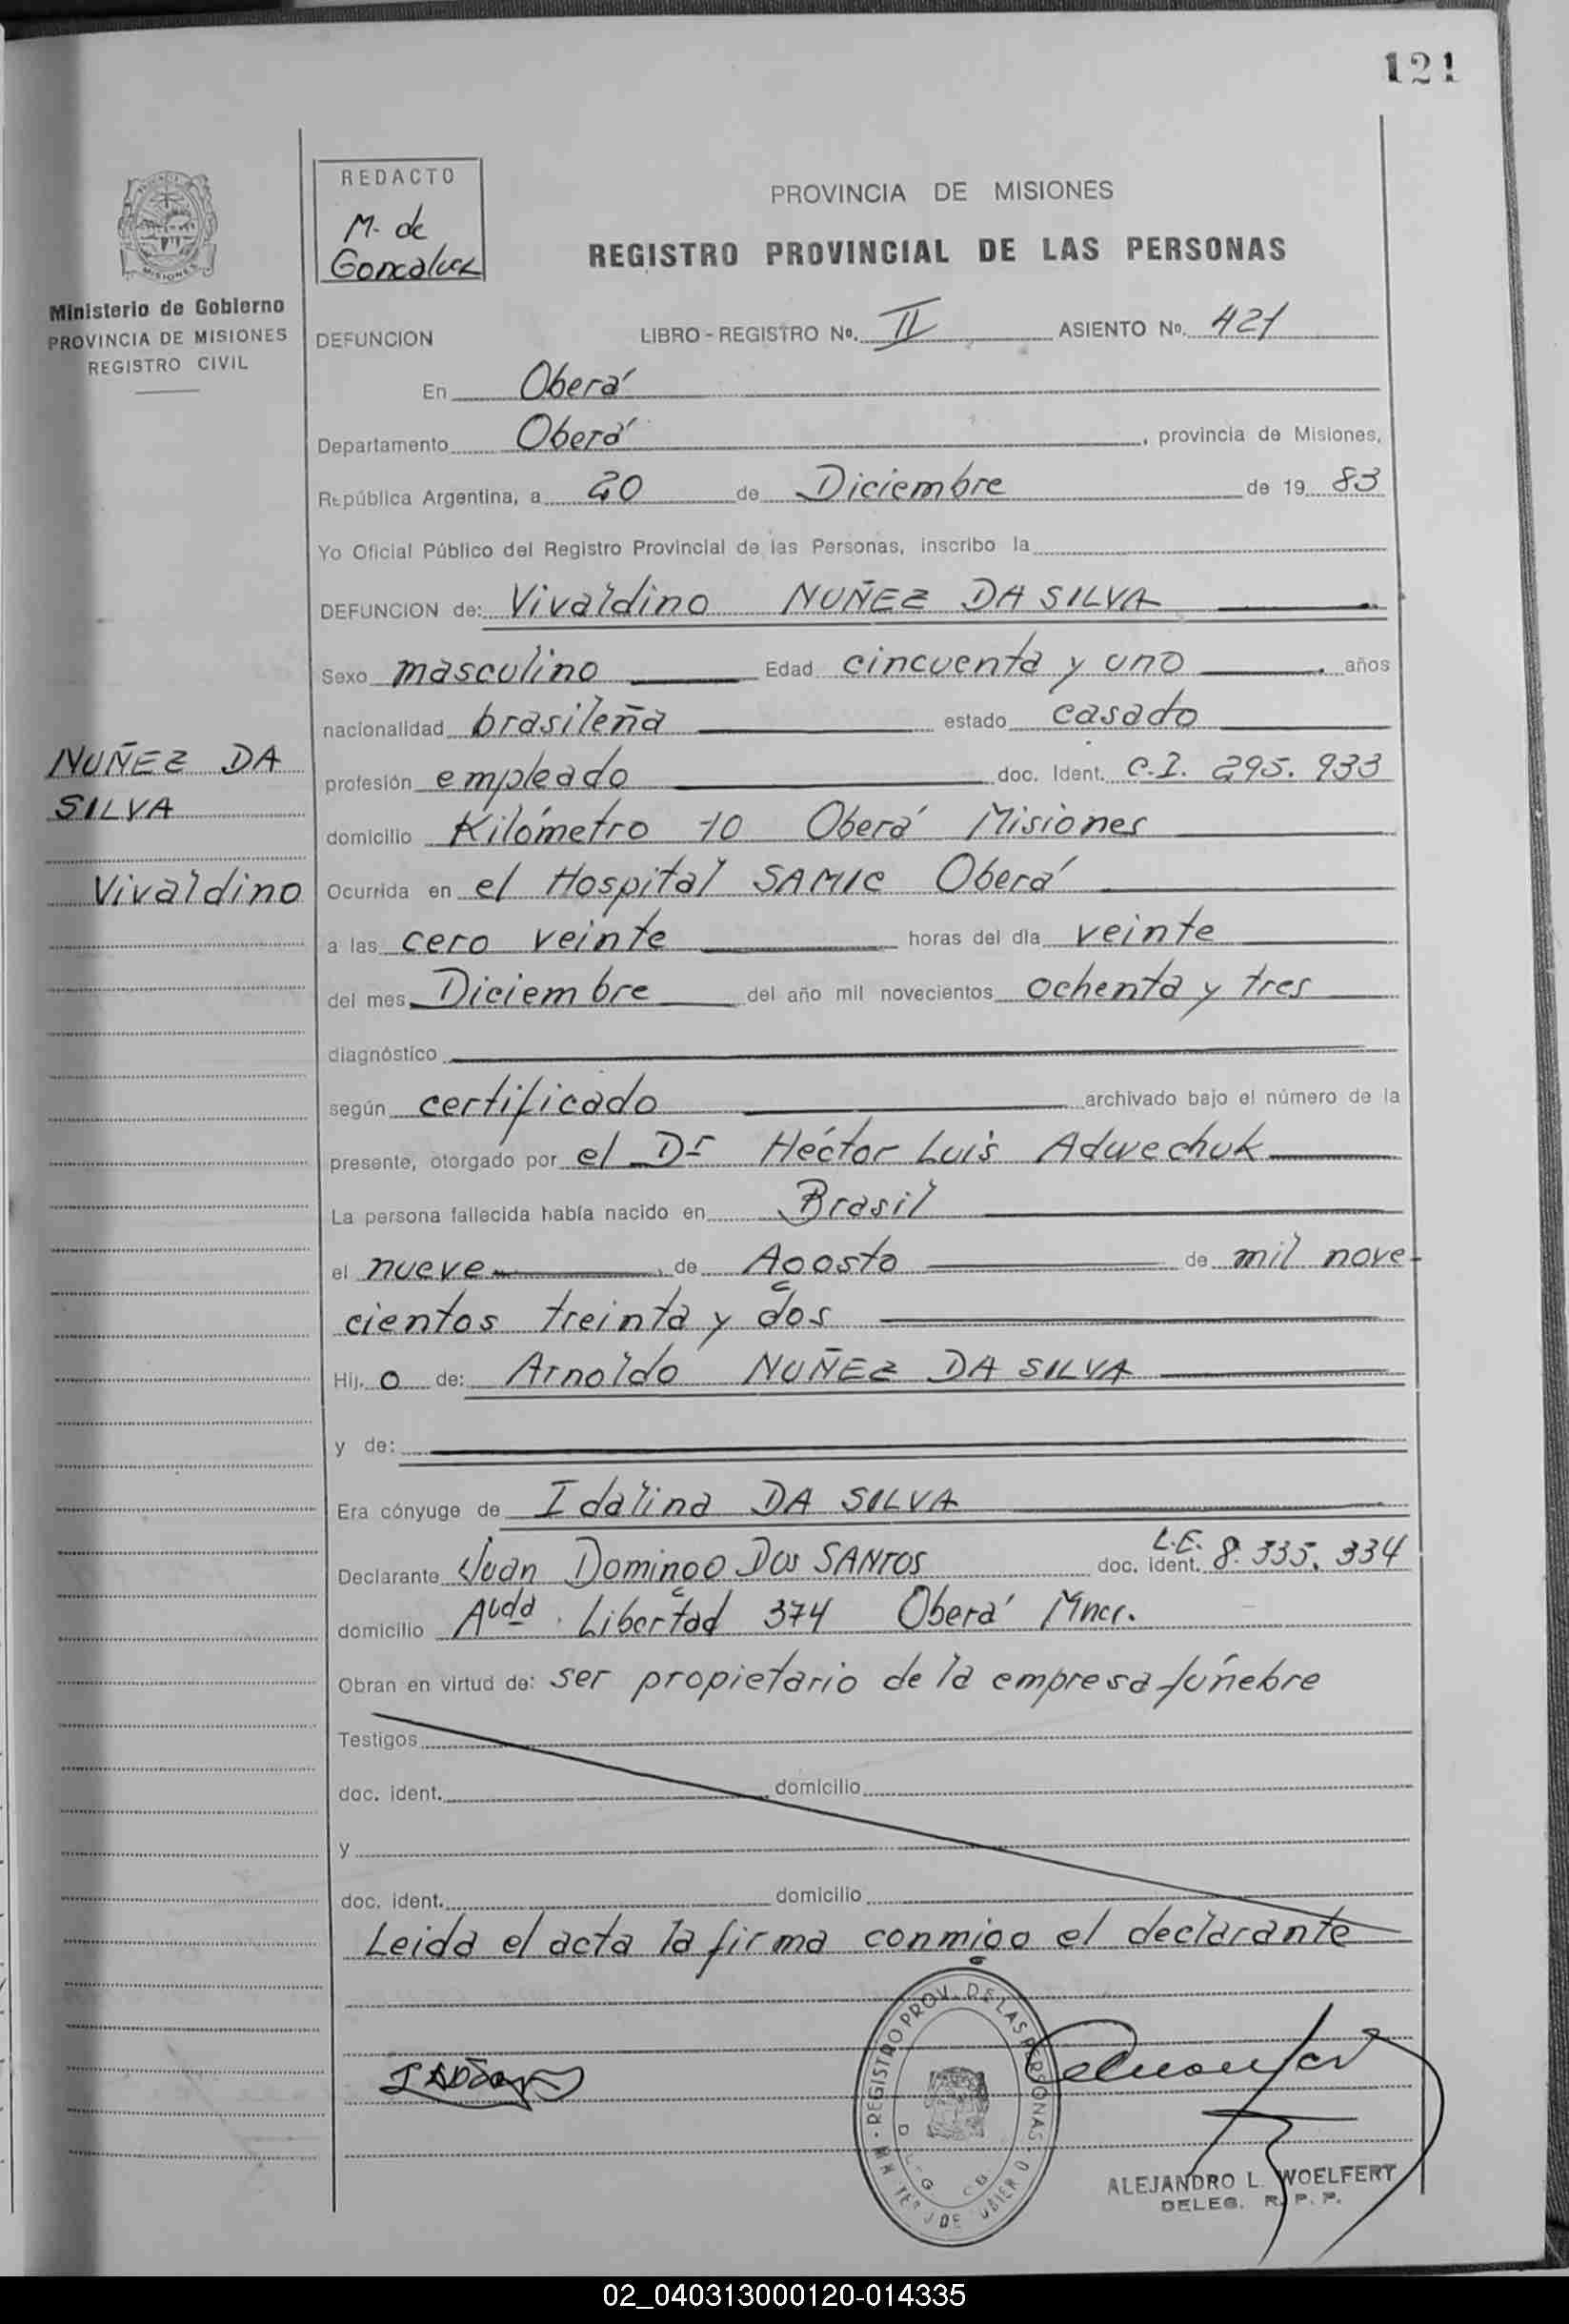 121
REDACTO
M. de
Goncalvez
PROVINCIA DE MISIONES
REGISTRO PROVINCIAL DE LAS PERSONAS
MISIONES
Ministerio de Gobierno
PROVINCIA DE MISIONES
REGISTRO CIVIL
DEFUNCION LIBRO-REGISTRO Nº. II ASIENTO Nº. 421
En Oberá
Departamento Oberá, provincia de Misiones,
República Argentina, a 20 de Diciembre de 19 83
Yo Oficial Público del Registro Provincial de las Personas, inscribo la
DEFUNCION de: Vivaldino NUÑEZ DA SILVA
Sexo masculino Edad cincuenta y uno años
nacionalidad brasileña estado casado
NUÑEZ DA
SILVA
Vivaldino
profesión empleado doc. Ident. C.I. 295.933
domicilio Kilómetro 10 Oberá Misiones
Ocurrida en el Hospital SAMIC Oberá
a las cero veinte horas del día veinte
del mes Diciembre del año mil novecientos ochenta y tres
diagnóstico
según certificado archivado bajo el número de la
presente, otorgado por el Dr Héctor Luis Adwechuk
La persona fallecida había nacido en Brasil
el nueve de Agosto de mil nove-
cientos treinta y dos
Hij. o de: Arnoldo NUÑEZ DA SILVA
y de:
Era cónyuge de Idalina DA SILVA
Declarante Juan Domingo DOS SANTOS doc. ident. L.E. 8.335.334
domicilio Avda. Libertad 374 Oberá Mnes.
Obran en virtud de: ser propietario de la empresa fúnebre
Testigos
doc. ident. domicilio
y
doc. ident. domicilio
Leida el acta la firma conmigo el declarante
REGISTRO PROV. DE LAS PERSONAS
ALEJANDRO L. WOELFERT
DELEG. R. P. P.
02_040313000120-014335